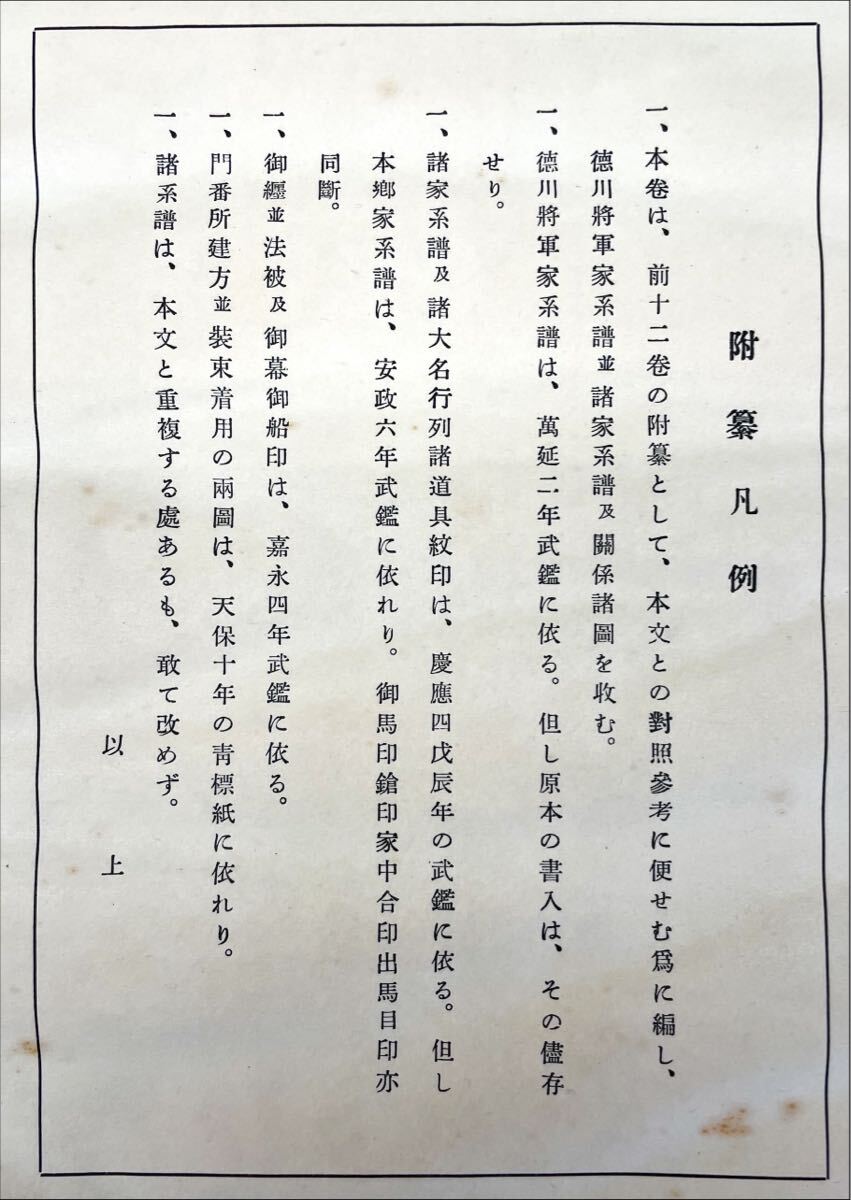 附纂凡例
一、本卷は、前十二卷の附纂として、本文との對照參考に便せむ爲に編し、
德川將軍家系譜並諸家系譜及關係諸圖を收む。
一、德川將軍家系譜は、萬延二年武鑑に依る。但し原本の書入は、その儘存
せり。
一、諸家系譜及諸大名行列諸道具紋印は、慶應四戊辰年の武鑑に依る。但し
本鄕家系譜は、安政六年武鑑に依れり。御馬印鎗印家中合印出馬目印亦
同斷。
一、御纒並法被及御幕御船印は、嘉永四年武鑑に依る。
一、門番所建方並裝束着用の兩圖は、天保十年の靑標紙に依れり。
一、諸系譜は、本文と重複する處あるも、敢て改めず。
以上